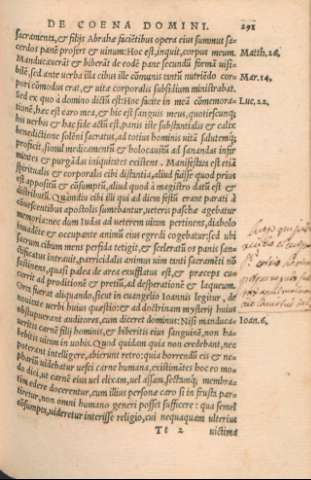 DE COENA DOMINI. 291
sacramenta, & filijs Abrahæ faciẽtibus opera eius summus sa-
cerdos panẽ profert & uinum: Hoc est, inquit, corpus meum. Matth. 26.
Manducauerãt & biberãt de eodẽ pane secundũ formã uisi-
bilẽ, sed ante uerba illa cibus ille cõmunis tantũ nutriẽdo cor- Mar. 14.
pori cõmodus erat, & uitæ corporalis subsidium ministrabat.
Sed ex quo à domino dictũ est: Hoc facite in meã cõmemora- Luc. 22.
tionẽ, hæc est caro mea, & hic est sanguis meus, quotiescunq;
his uerbis & hac fide actũ est, panis iste substantialis & calix
benedictione solẽni sacratus, ad totius hominis uitã salutemq;
proficit, simul medicamentũ & holocaustũ ad sanandas infir
mitates & purgãdas iniquitates existens. Manifestus est etiã
spiritualis & corporalis cibi distantia, aliud fuisse quod prius
est appositũ & cõsumptũ, aliud quod à magistro datũ est &
distributũ. Quãdiu cibi illi qui ad diem festũ erant parati à
conuescentibus apostolis sumebantur, ueteris paschæ agebatur
memoria: nec dum Iudas ad ueterem uitam pertinens, diabolo
inuadẽte & occupante animũ eius egredi cogebatur: sed ubi
sacrum cibum mens perfida tetigit, & sceleratũ os panis san-
ctificatus intrauit, parricidialis animus uim tanti sacramẽti nõ
sustinens, quasi palea de area exufflatus est, & præceps cu-
currit ad proditionẽ & pretiũ, ad desperationẽ & laqueum.
Orta fuerat aliquando, sicut in euangelio Ioannis legitur, de
nouitate uerbi huius quæstio: & ad doctrinam mysterij huius
obstupuerant auditores, cum diceret dominus: Nisi manduca- Ioan. 6.
ueritis carnẽ filij hominis, & biberitis eius sanguinẽ, non ha-
bebitis uitam in uobis. Quod quidam quia non credebant, nec
poterant intelligere, abierunt retro: quia horrendũ eis & ne-
pharium uidebatur uesci carne humana, existimãtes hoc eo mo
do dici, ut carnẽ eius uel elixam, uel assam, sectamq; membra-
tim edere docerentur, cum illius personæ caro si in frusta par-
tiretur, non omni humano generi posset sufficere: qua semel
cõsumpta, uideretur interisse religio, cui nequaquam ulterius
Tt 2 uictima